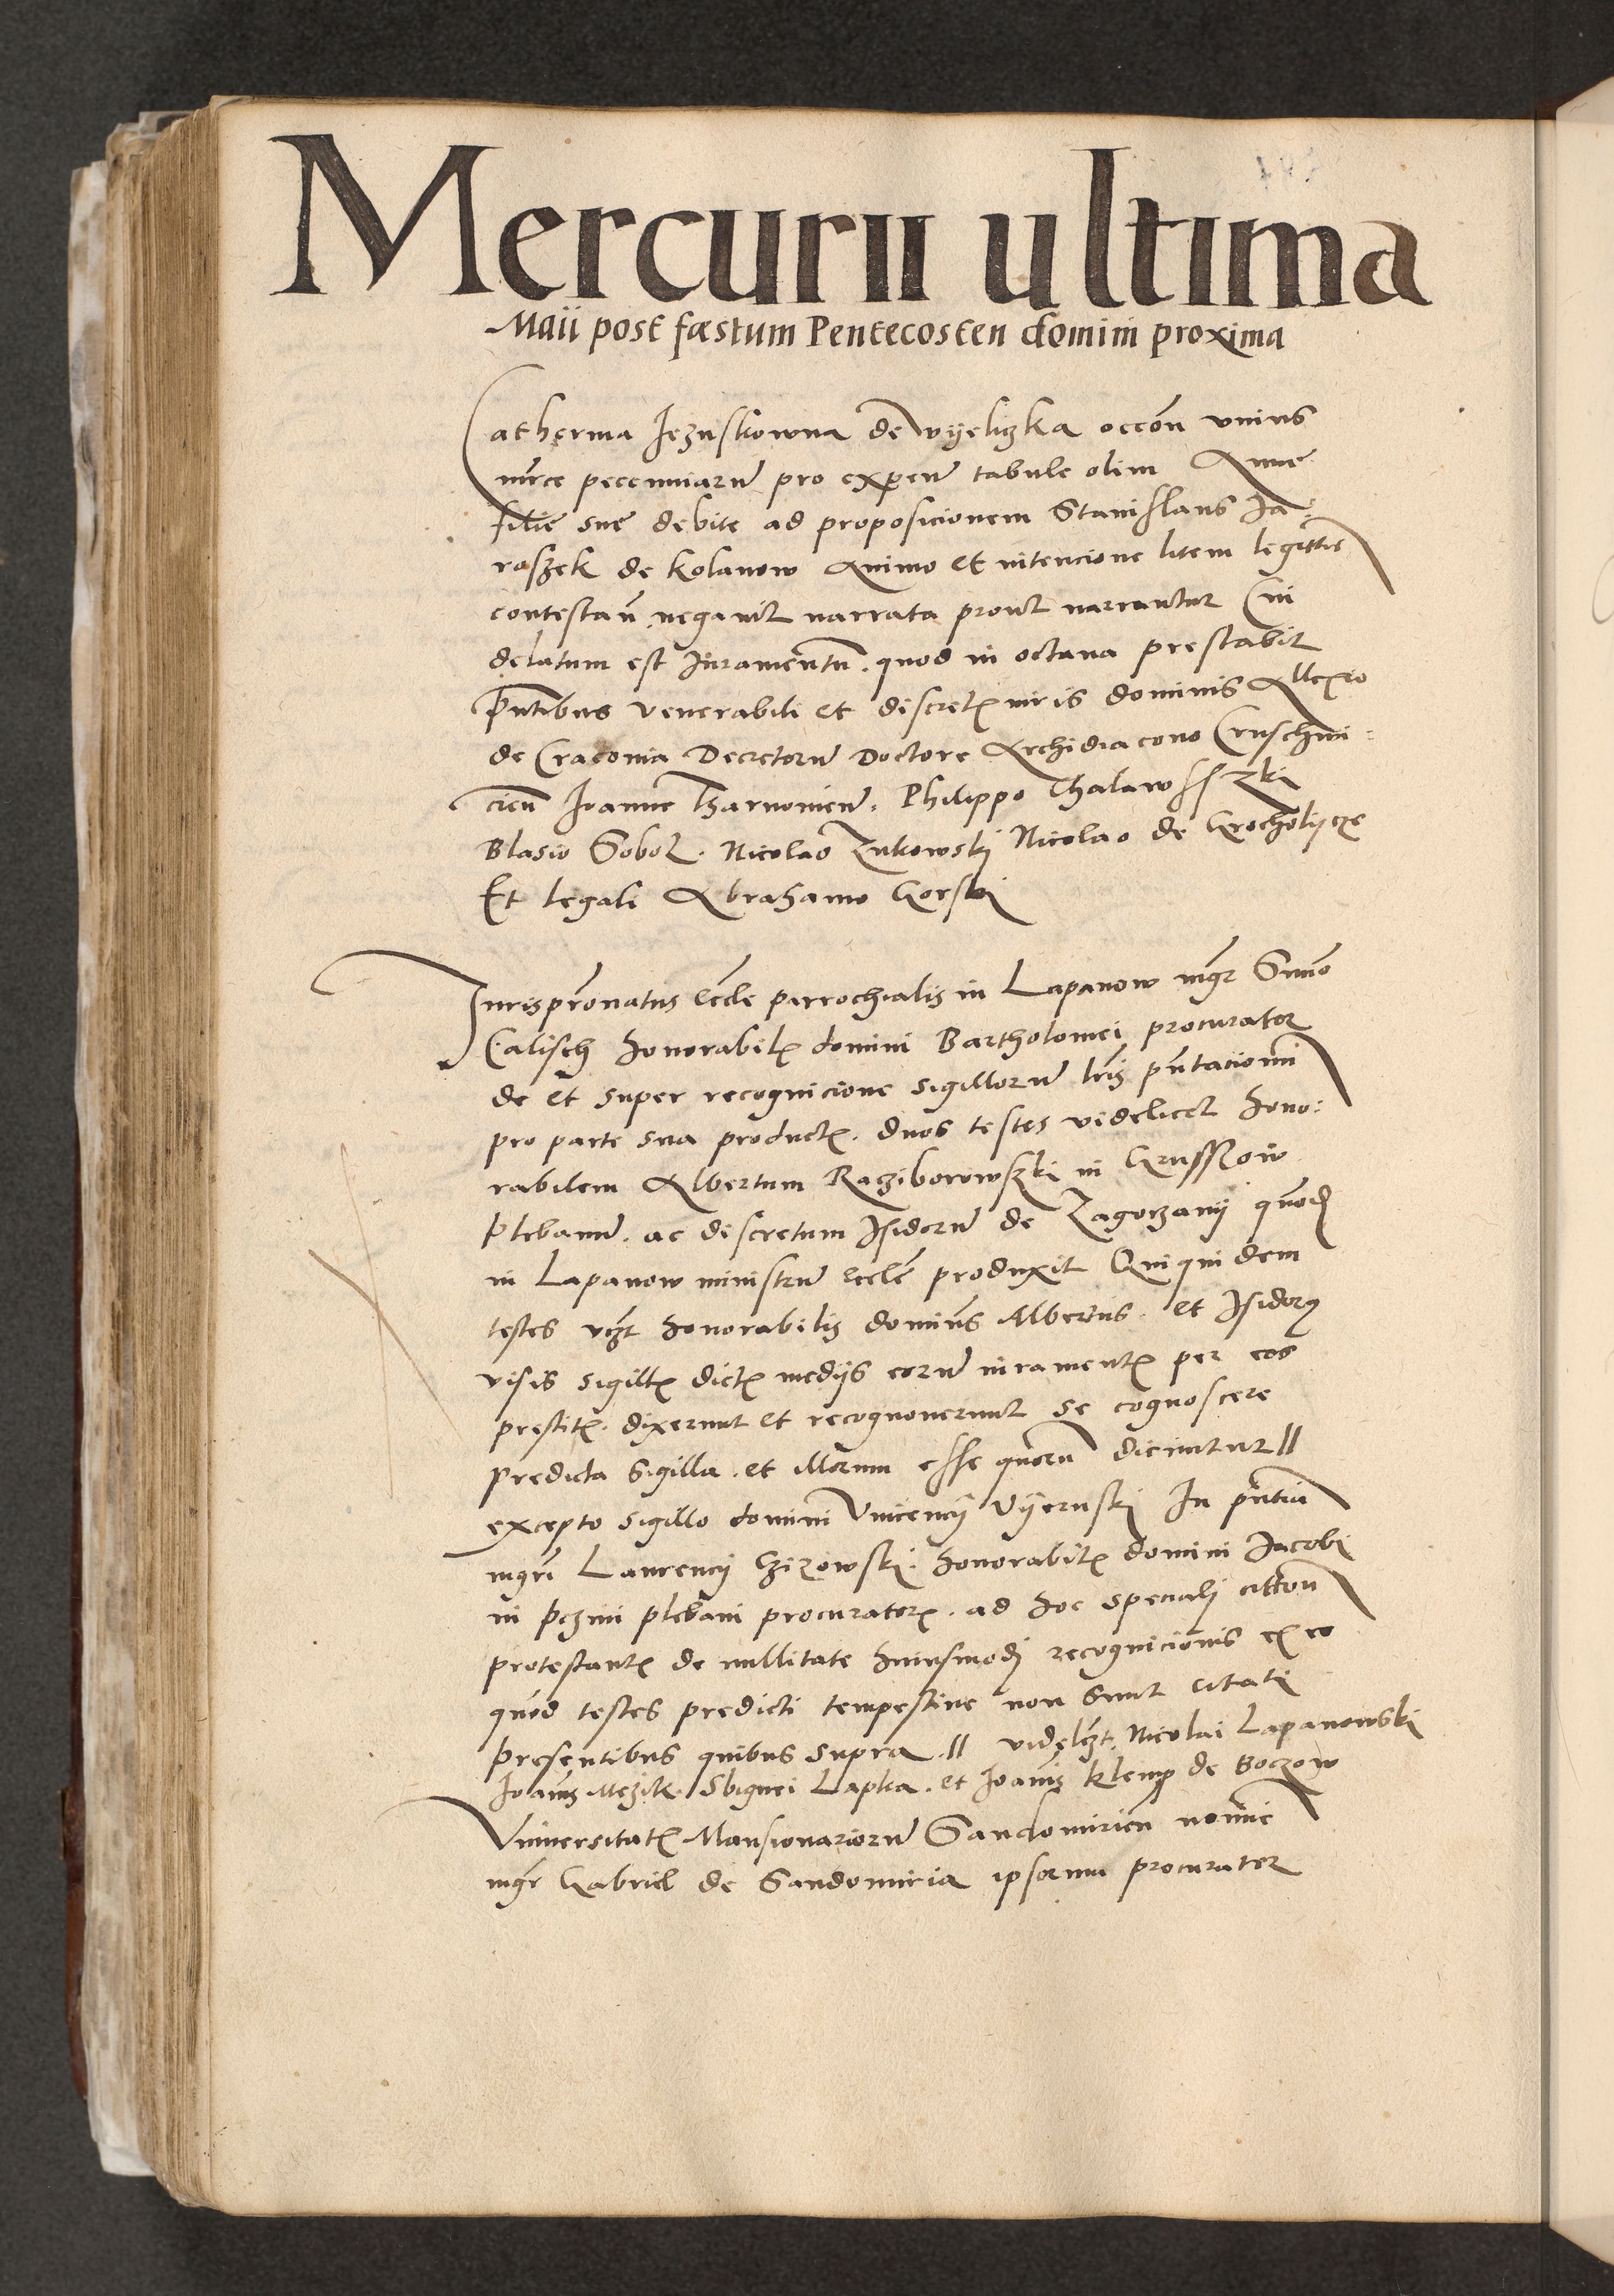 Mercurii ultima
Maii post fæstum Pentecosten domini proxima
Catherina Jezuskowna de Wyeliczka occōn unius
mrce pecuniarū pro expen̄ tabule olim Anne
filie sue debite ad proposicionem Stanislaus Ja-
roszek de kolanow Animo et intencione litem legittie
contestan̄ negavit narrata prout narrantur Cui
delatum est Juramentū. quod in octava prestabit
pn̄tibus venerabili et discretꝭ viris dominis Allexio
de Cracovia Decretorū Doctore Archidiacono Cruschwi-
cien̄ Joanne Tharnovien̄. Philippo Thalawsszki
Blasio Sobol. Nicolao Zukowskj Nicolao de Grocholycze
Et legali Abrahamo Gorskj
Jurispr̄onatus eccle parrochialis in Lapanow mgr̄ Simō
Calisch honorabilꝭ domini Bartholomei procurator
de et super recognicione sigillorū lrīs pn̄tacioni
pro parte sua productꝭ. duos testes videlicet hono-
rabilem Albertum Racziborowszki in Grussow
plebanū. ac discretum Isidorū de Zagorzany quōdj
in Lapanow ministrū eccle produxit Qui quidem
testes vcz̄t honorabilis dominus Albertus. et Isidorꝰ
visis sigillꝭ dictꝭ medys eorū iuramentꝭ per eos
prestitꝭ. dixerunt et recognoverunt se cognoscere
predicta Sigilla. et illorum esse quorū dicuntur //
excepto sigillo domini Vincency Vyernskj In pn̄tia
mgrī Laurency Czizowskj. honorabilꝭ domini Jacobi
in pczim plebani procuratorꝭ. ad hoc specialj citton̄
protestantꝭ de nullitate huiusmodj recognicionis ex eo
quod testes predicti tempestive non sunt citati
Presentibus quibus supra. // videlcz̄t. Nicolai Lapanowski
Joan̄is Mezik. Sbignei Lapka. et Joan̄is klemp de Boczow
Universitatꝭ Mansionariorū Sandomirien̄ nomine
mgr̄ Gabriel de Sandomiria ipsorum procurator